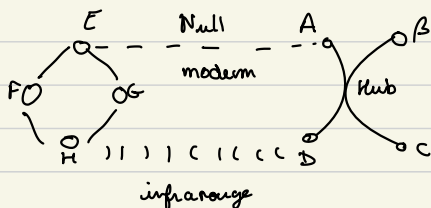 E Null A B
F G modem Hub
H D C
infrarouge